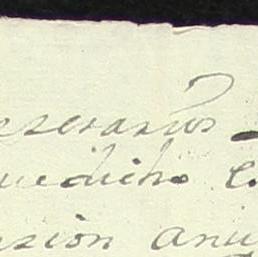 eserarios
uedicho C
nsion anu